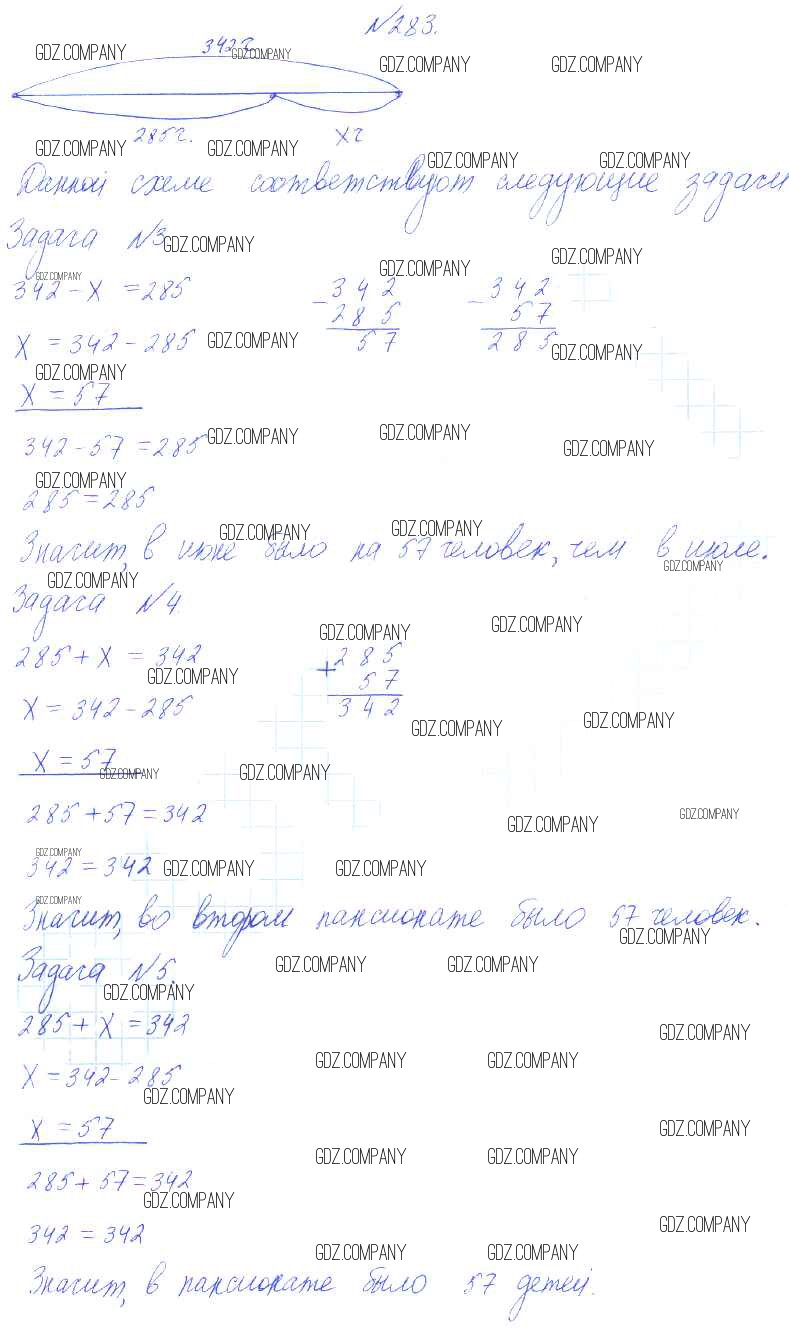 №283.
342г
285г.
хг
Данной схеме соответствуют следующие задачи
Задача №3
342 - х = 285
х = 342 - 285
х = 57
342 - 57 = 285
285 = 285
- 342
285
57
- 342
57
285
Значит, в июне было на 57 человек, чем в июле.
Задача №4
285 + х = 342
х = 342 - 285
х = 57
285 + 57 = 342
342 = 342
+ 285
57
342
Значит, во втором пансионате было 57 человек.
Задача №5.
285 + х = 342
х = 342 - 285
х = 57
285 + 57 = 342
342 = 342
Значит, в пансионате было 57 детей.
GDZ.COMPANY